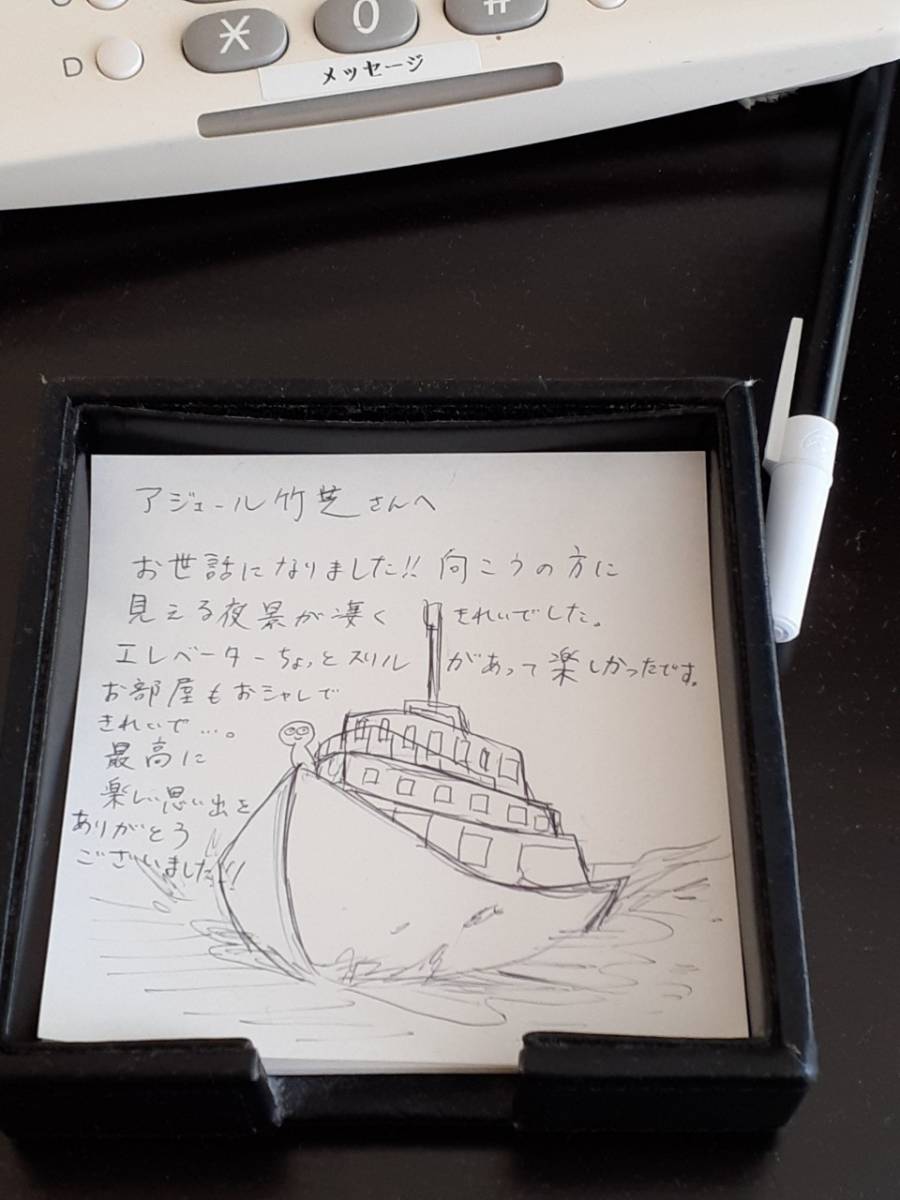 * 0 #
D
メッセージ
アジュール竹芝さんへ
お世話になりました!! 向こうの方に
見える夜景が凄く きれいでした。
エレベーターちょっとスリル があって楽しかったです。
お部屋もおシャレで
きれいで…。
最高に
楽しい思い出を
ありがとう
ございました!!